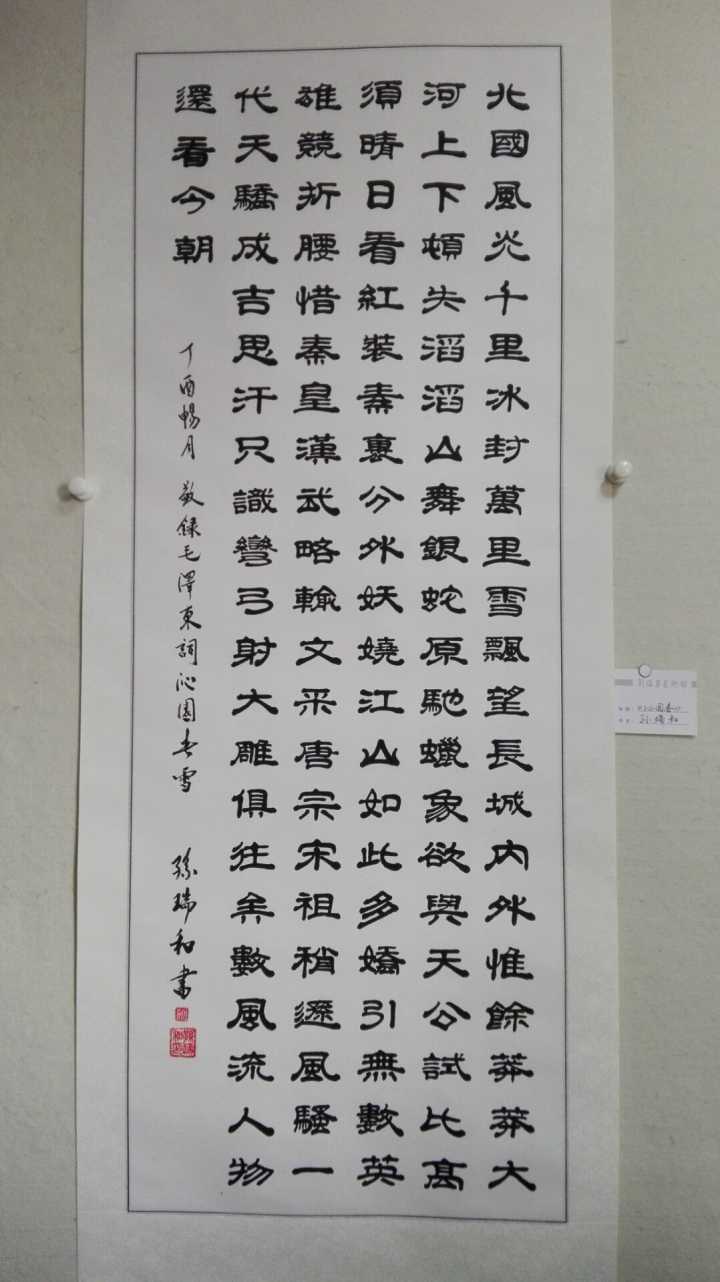 北國風光千里冰封萬里雪飄望長城內外惟餘莽莽大
河上下頓失滔滔山舞銀蛇原馳蠟象欲與天公試比高
須晴日看紅裝素裹分外妖嬈江山如此多嬌引無數英
雄競折腰惜秦皇漢武略輸文采唐宗宋祖稍遜風騷一
代天驕成吉思汗只識彎弓射大雕俱往矣數風流人物
還看今朝
丁酉暢月 敬錄毛澤東詞沁園春雪 孫瑞和書
孙瑞和